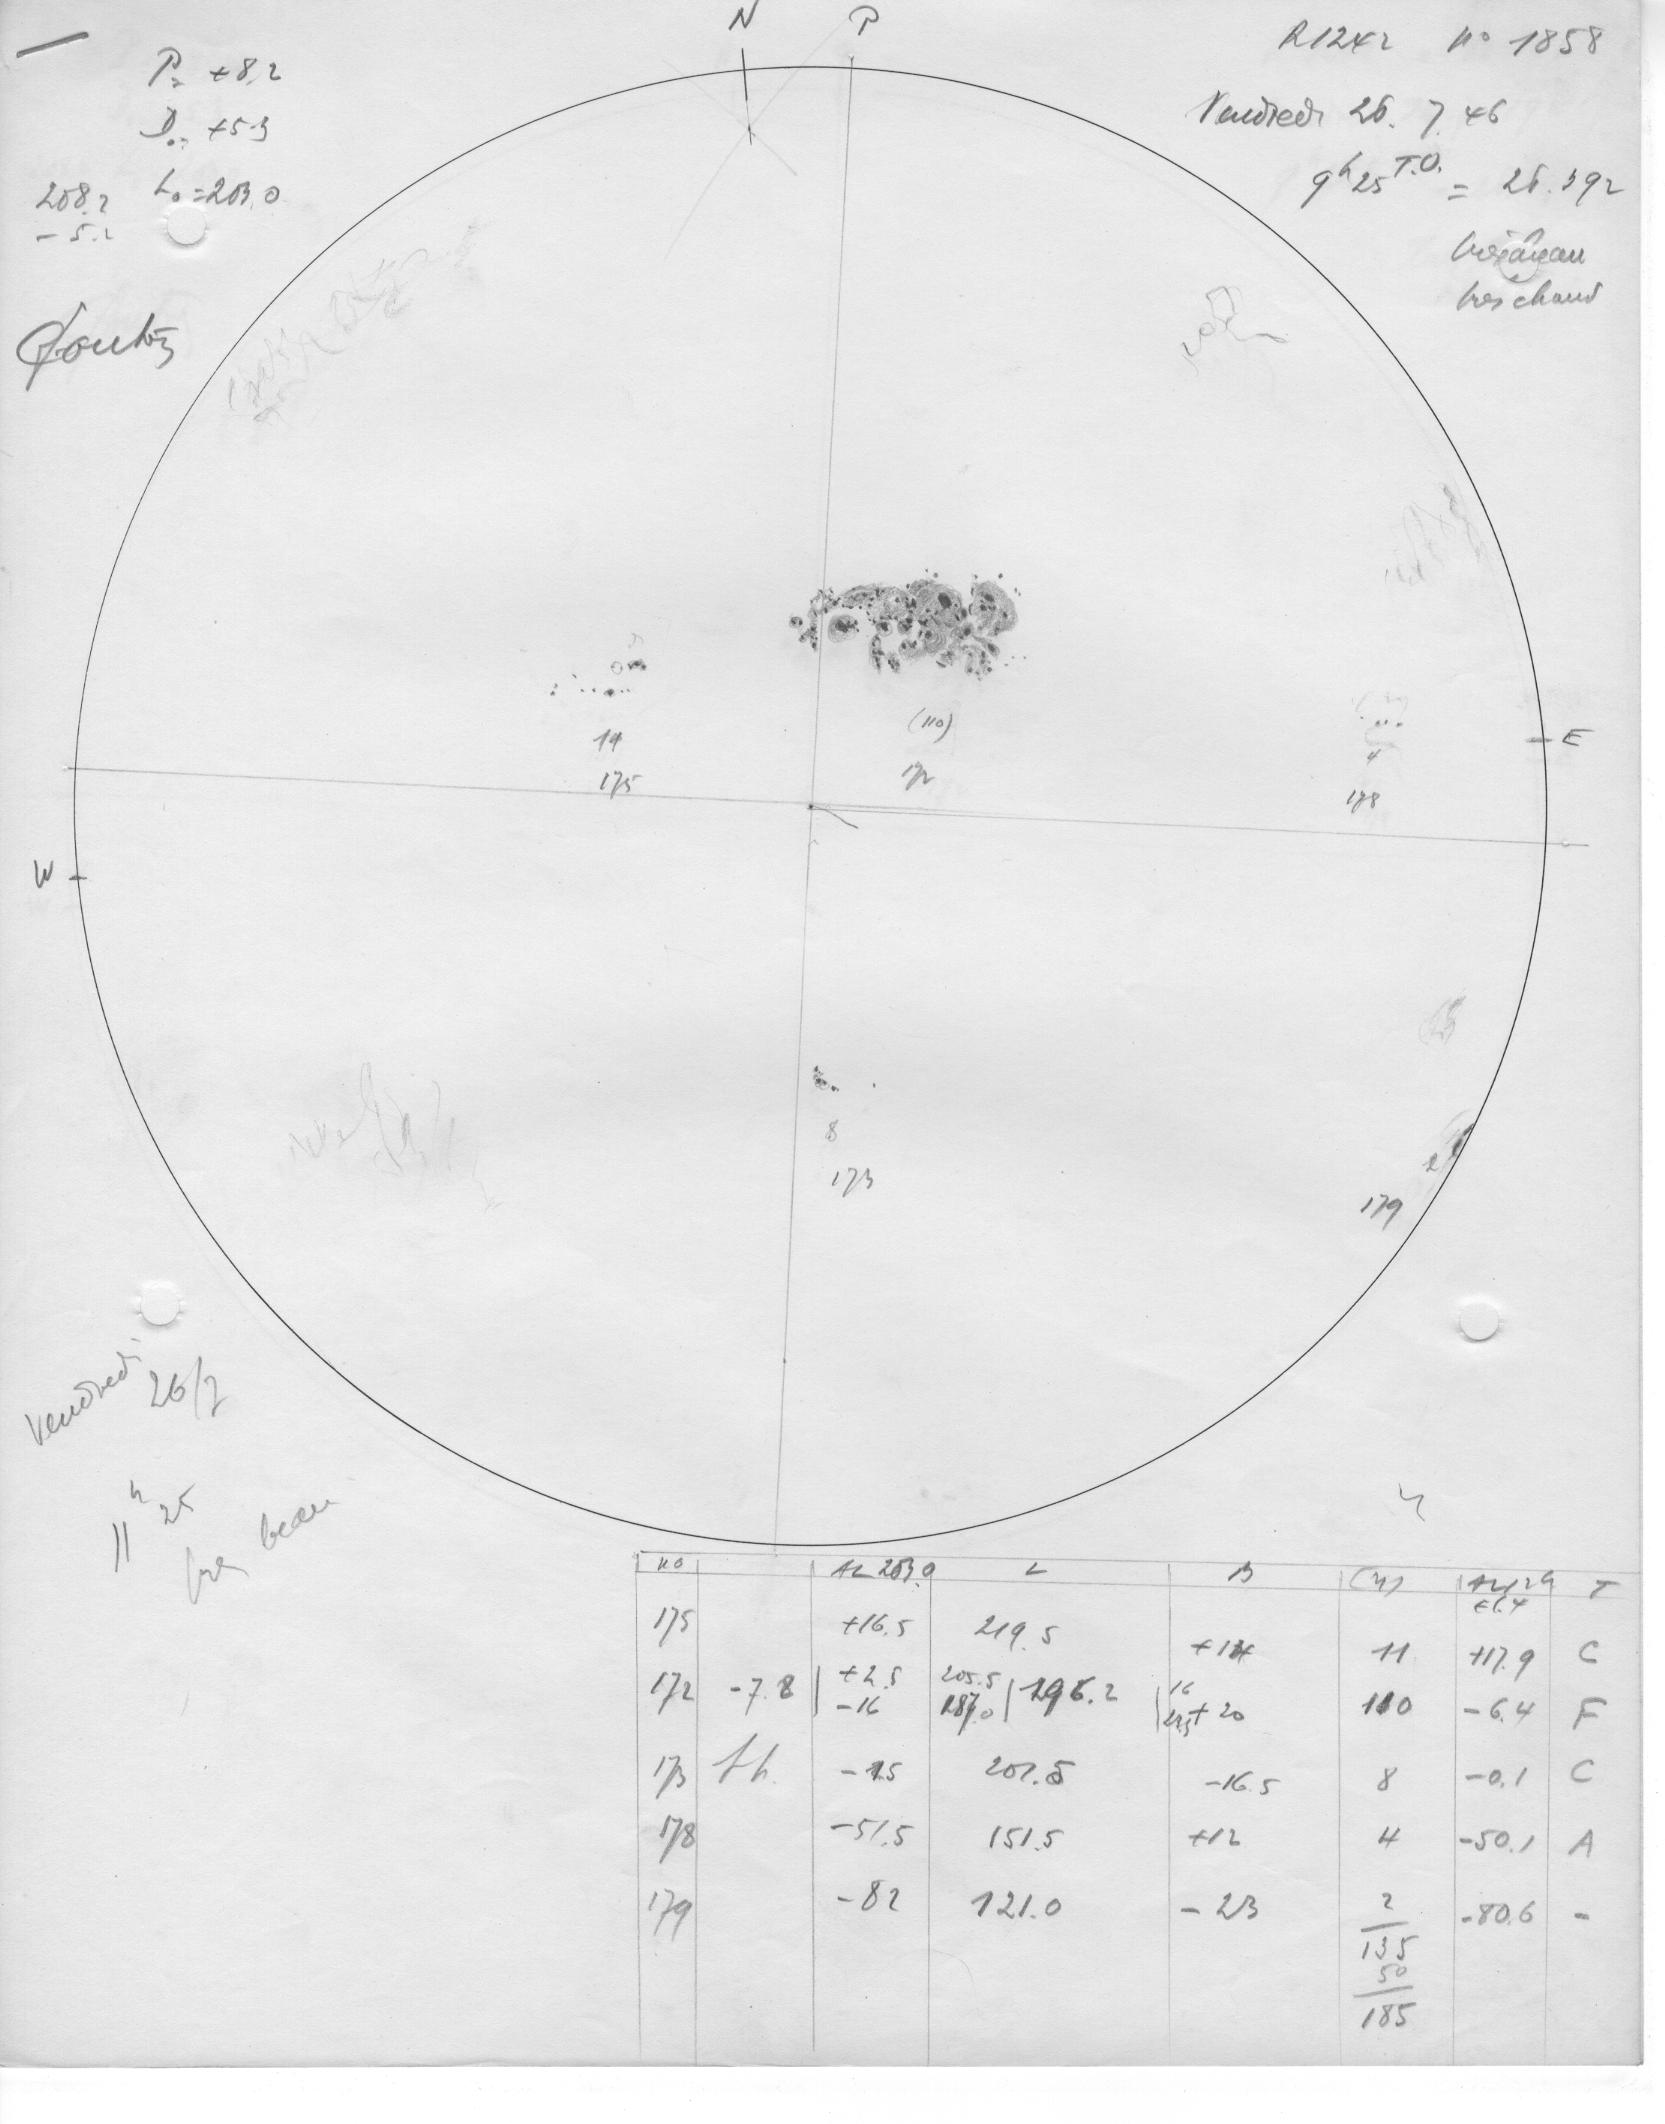 N P
R1242 no 1858
P= +8.2
Vendredi 26. 7. 46
D0= +5.3
9h25 T.O. = 26.392
208.2 L0=203.0
- 5.2
très beau
très chaud
(110)
14
172
175
4
178
E
W
8
173
179
Vendredi 26/7
11h 25
très beau
no L B T
175 +16.5 219.5 +14 11 +17.9 C
172 -7.8 +2.5 205.5 196.2 16 +20 110 -6.4 F
-16 187.0
173 -1.5 201.5 -16.5 8 -0.1 C
178 -51.5 151.5 +12 4 -50.1 A
179 -82 121.0 -23 2 -80.6 -
135
50
185